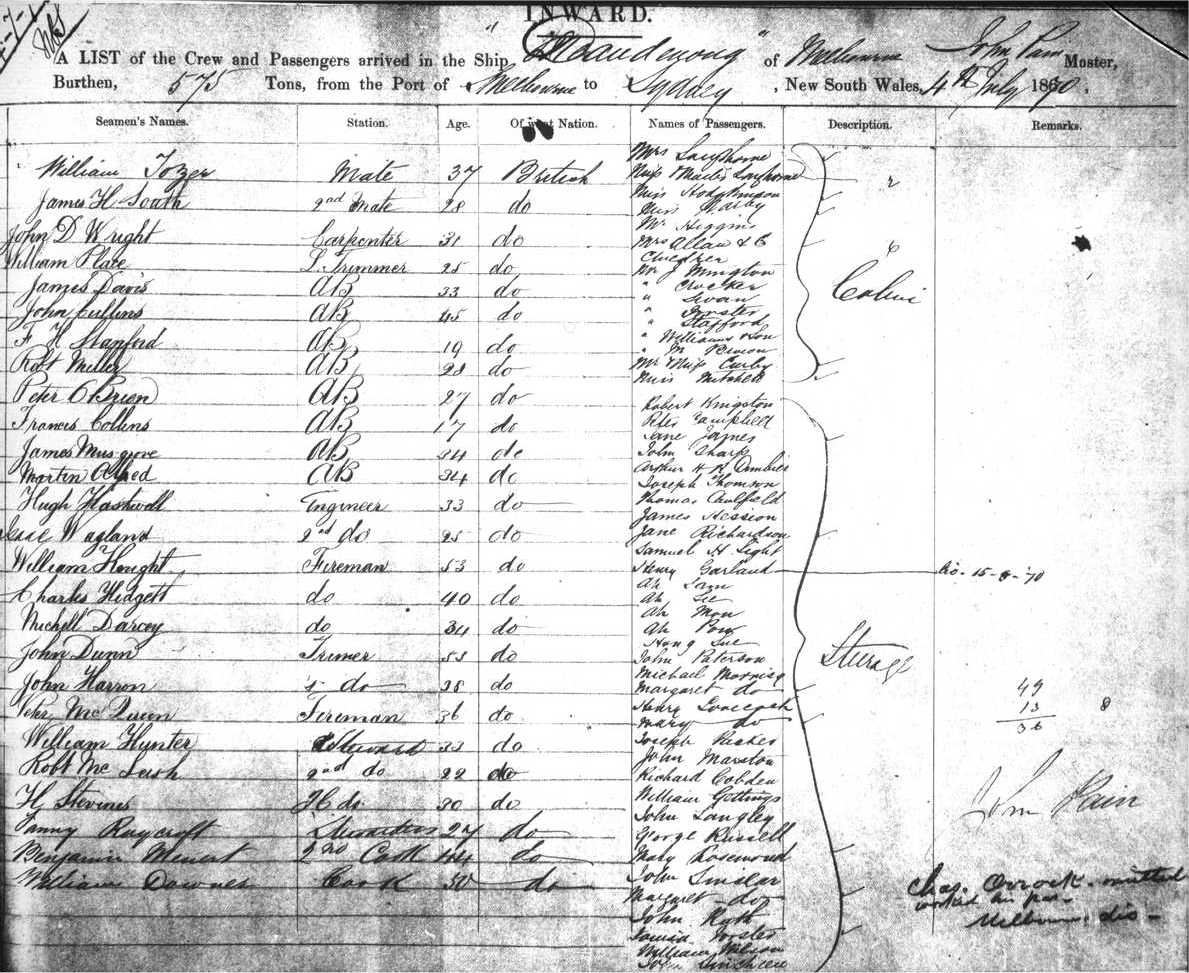 INWARD.
A LIST of the Crew and Passengers arrived in the Ship " Dandenong " of Melbourne John Pain Master,
Burthen, 575 Tons, from the Port of Melbourne to Sydney , New South Wales, 4th July 1870 .
Seamen's Names. Station. Age. Of what Nation. Names of Passengers. Description. Remarks.
Mrs
William Tozer Mate 37 British Miss
Miss Hodgkinson
James H South 2nd Mate 28 do Miss
Mr Higgins
John D Wright Carpenter 31 do Mrs Allan & C
William Place L. Trimmer 25 do Mr J
James Davis AB 33 do " Crocker
" Swan
John Cullins AB 45 do " Forster
" Stafford
F H Stanford AB 19 do " Williams & Son
Cabin
" M
Robt Miller AB 28 do Mr & Miss Curby
Miss Mitchell
Peter O'Brien AB 27 do Robert Kingston
Francis Collins AB 17 do Peter Campbell
Jane James
James Musgrove AB 34 do John Sharp
Martin Alfred AB 34 do Arthur H K
Joseph Thomson
Hugh Hastwell Engineer 33 do Thomas Caulfield
James Hession
Wagland 2nd do 25 do Jane Richardson
Samuel H Light
William Hought Fireman 53 do Henry Garland 15-8-70
Ah Sam
Charles Hidgett do 40 do Ah Lee
Ah Mon
Michell Darcey do 34 do Ah
Hong Lee
John Dunn Trimer 53 do John Paterson
Sturage
Michael Morrisy
John Harron do 28 do Margaret do 49
Peter McQueen Fireman 36 do Henry 13 8
Mary do 36
William Hunter Steward 33 do Joseph Parker
John Marston
Robt McLeish 2nd do 22 do Richard Cobden
William Gettings
H Stevens do 30 do John Langley John Pain
Fanny Raycroft Stewardess 27 do George Russell
Benjamin 2nd Cook 44 do Mary Rosewood
William Downes Cook 50 do John Sinclar
Chas. Orrock omitted
Margaret do worked his pas-
John Roth Melbourne dis -
Louisa Forster
William Wilson
John